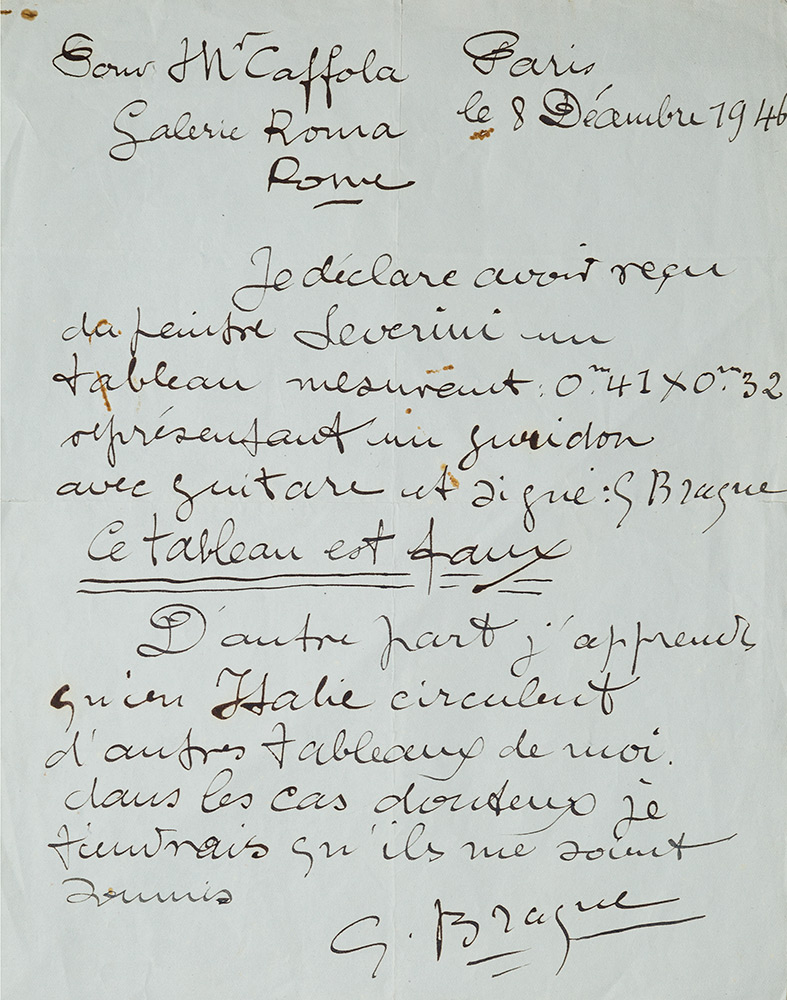 Pour Mr Caffola
Galerie Roma
Rome
Paris
le 8 Décembre 1946
Je déclare avoir reçu
du peintre Severini un
tableau mesurant : 0m41 x 0m32
représentant un guéridon
avec guitare et signé : G Braque
Ce tableau est faux
D'autre part j'apprends
qu'en Italie circulent
d'autres tableaux de moi.
dans les cas douteux je
tiendrais qu'ils me soient
soumis
G. Braque